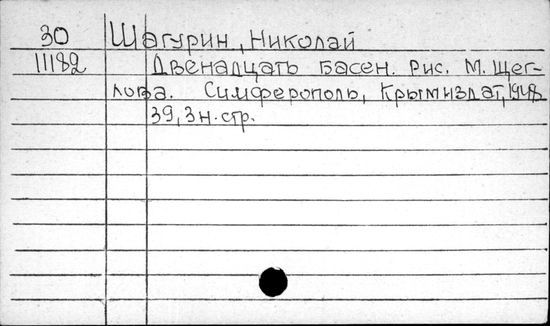 30 Шагурин, Николай
11182 Двенадцать басен. Рис. М. Щег-
лова. Симферополь, Крымиздат, 1948
39, 3 н. стр.